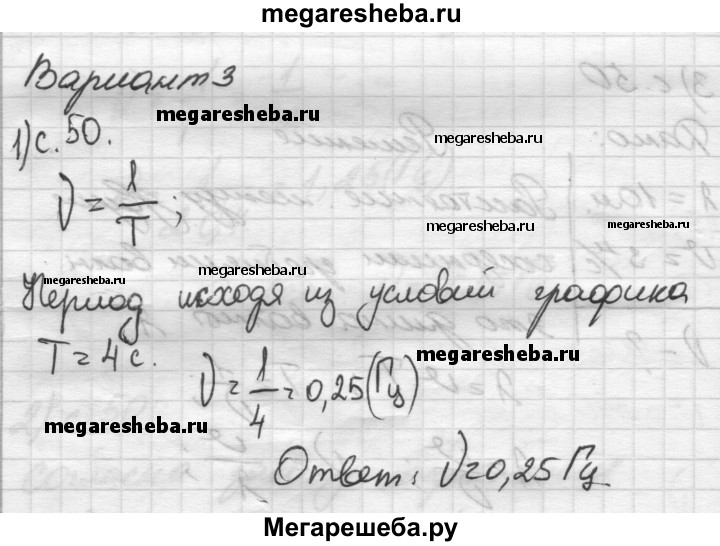 megaresheba.ru
Вариант 3
megaresheba.ru
megaresheba.ru
1) с. 50.
ν = 1/T ;
megaresheba.ru
megaresheba.ru
megaresheba.ru
megaresheba.ru
Период исходя из условий графика
T = 4 с.
megaresheba.ru
ν = 1/4 = 0,25 (Гц)
megaresheba.ru
megaresheba.ru
Ответ: ν = 0,25 Гц
Мегарешеба.ру